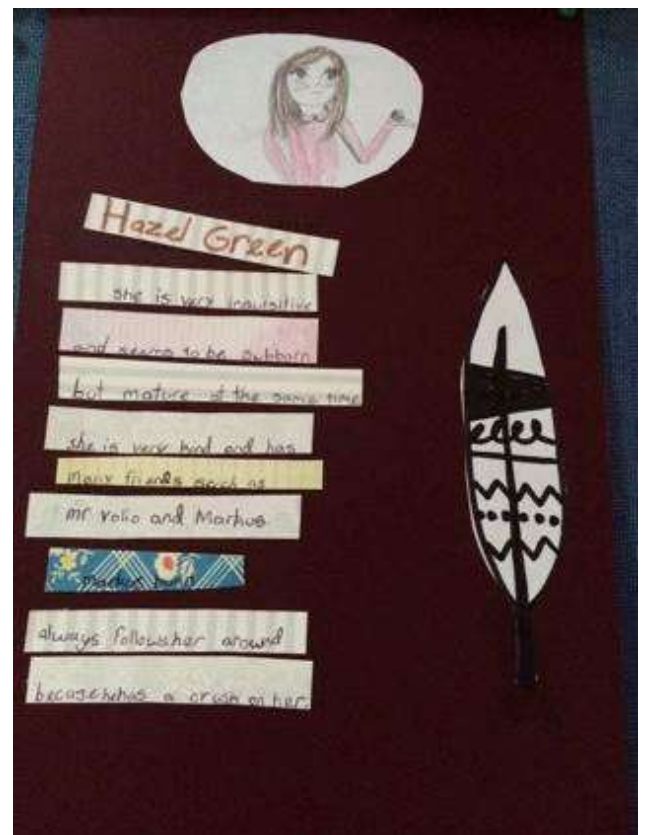 Hazel Green
she is very inquisitive
and seems to be stubborn
but mature at the same time
she is very kind and has
many friends such as
mr volio and Markus
markus
always followsher around
becasehehas a crush on her